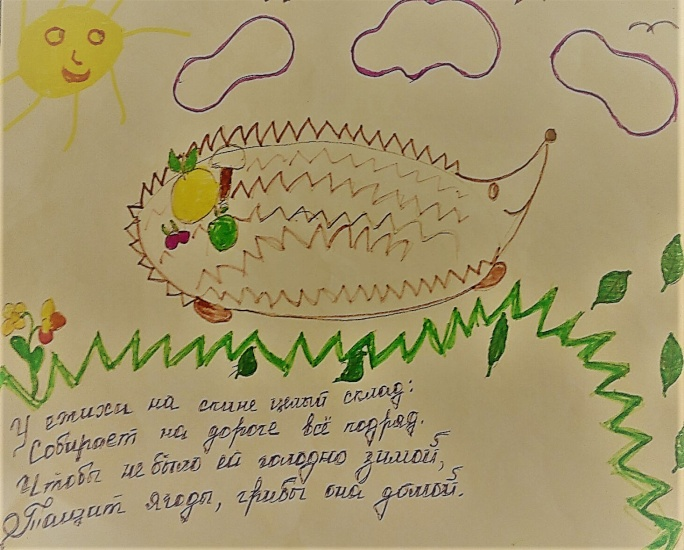 У ежихи на спине целый склад:
Собирает на дороге всё подряд.
Чтобы не было ей голодно зимой,
Тащит ягоды, грибы она домой.